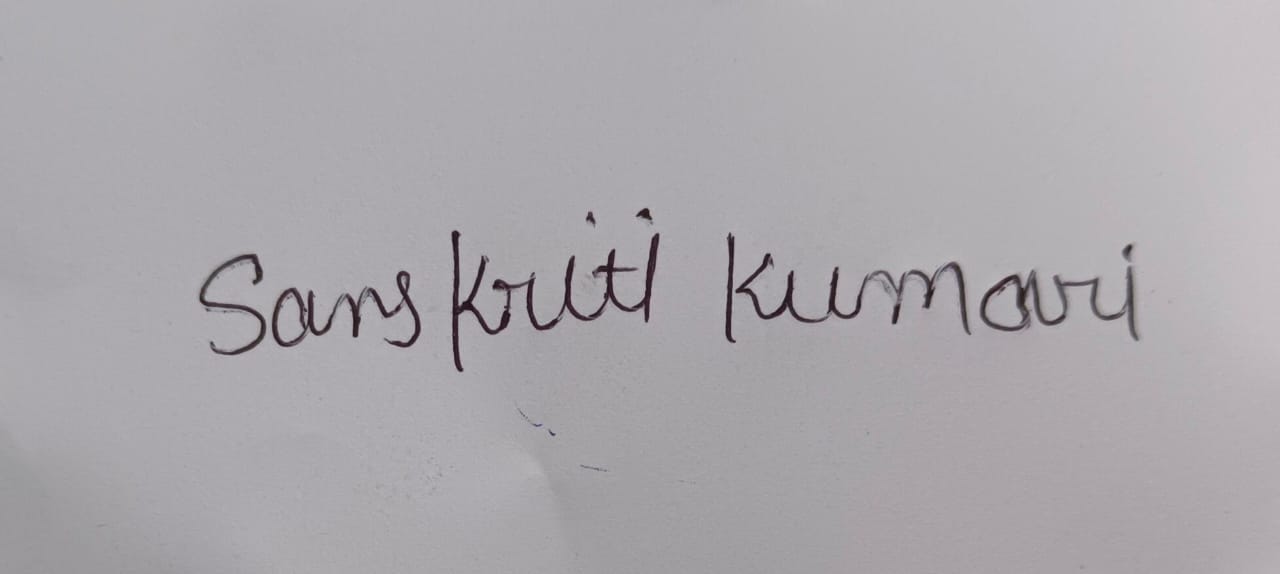 Sanskriti Kumari